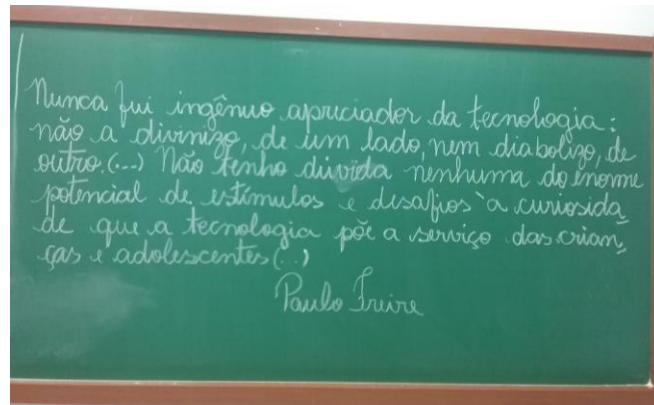 Nunca fui ingênuo apreciador da tecnologia:
não a divinizo, de um lado, nem diabolizo, de
outro. (...) Não tenho dúvida nenhuma do enorme
potencial de estímulos e desafios à curiosida_
de que a tecnologia põe a serviço das crian_
ças e adolescentes (...)
Paulo Freire